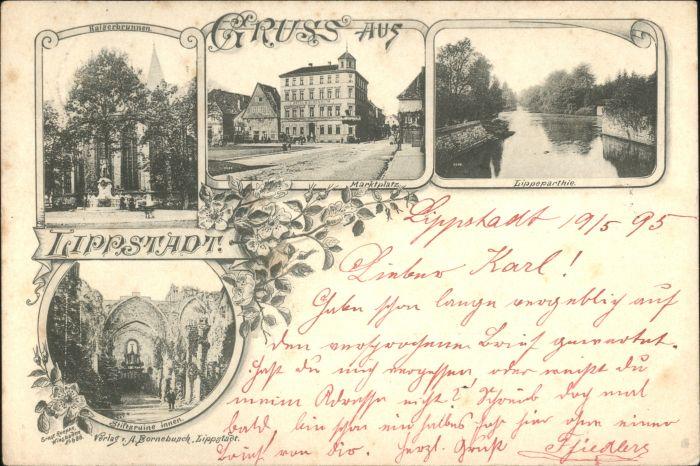 Kaiserbrunnen.
GRUSS AUS
Marktplatz.
Lippeparthie.
LIPPSTADT.
Stiftsruine innen.
Verlag v. A. Bornebusch, Lippstadt.
Lippstadt 19/5 95
Lieber Karl!
Habe schon lange vergeblich auf
den versprochene Brief gewartet.
Hast du mich vergessen oder weißt du
meine Adresse nicht? Schreib doch mal
bald, bin schon ein halbes Jahr hier ohne einen
Brief von dir. Herzl. Gruß